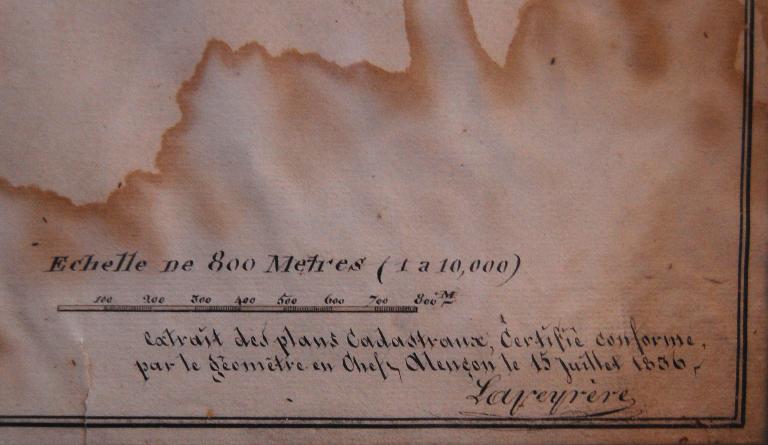 Echelle de 800 Metres (1 a 10,000)
100 200 300 400 500 600 700 800 M
extrait des plans Cadastraux, Certifié conforme,
par le géomètre en Chef, Alençon le 15 Juillet 1836
Lapeyrère